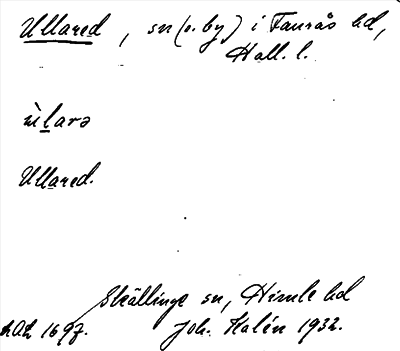 Ullared, sn (o. by) i Faurås hd,
Hall. l.
ùlarə
Ullared.
Skällinge sn, Himle hd
1697. Joh. Kalén 1932.